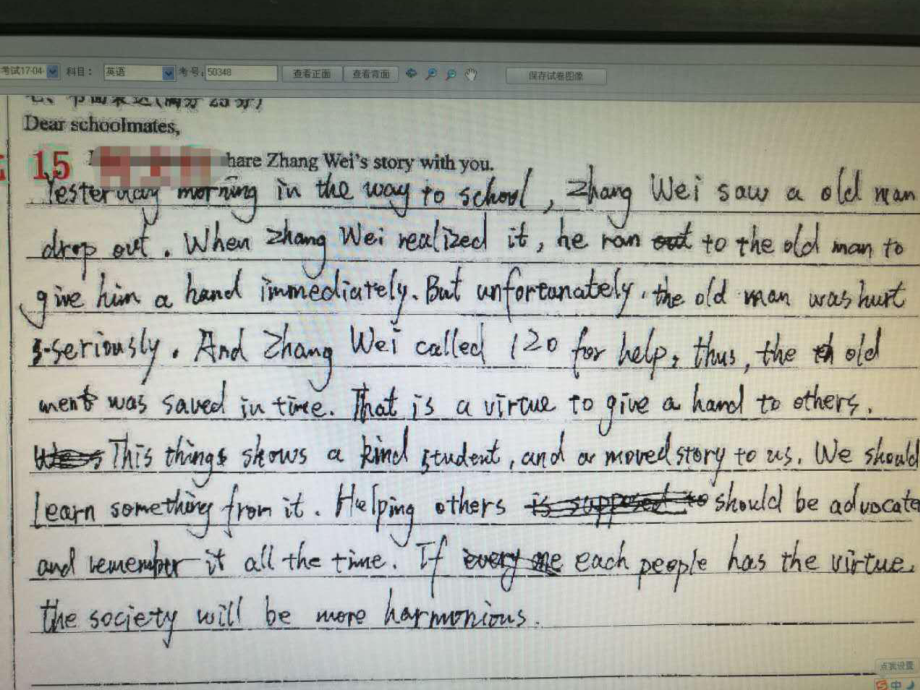 考试17-04 科目: 英语 考号: 50348 查看正面 查看背面 保存试卷图像
七、书面表达(满分25分)
Dear schoolmates,
15 hare Zhang Wei's story with you.
Yesterday morning in the way to school, Zhang Wei saw a old man
drop out. When Zhang Wei realized it, he ran to the old man to
give him a hand immediately. But unfortunately, the old man was hurt
seriously. And Zhang Wei called 120 for help, thus, the old
ment was saved in time. That is a virtue to give a hand to others.
This things shows a kind student, and a moved story to us. We should
learn something from it. Helping others should be advocate
and remember it all the time. If each people has the virtue,
the society will be more harmonious.
点我设置
中